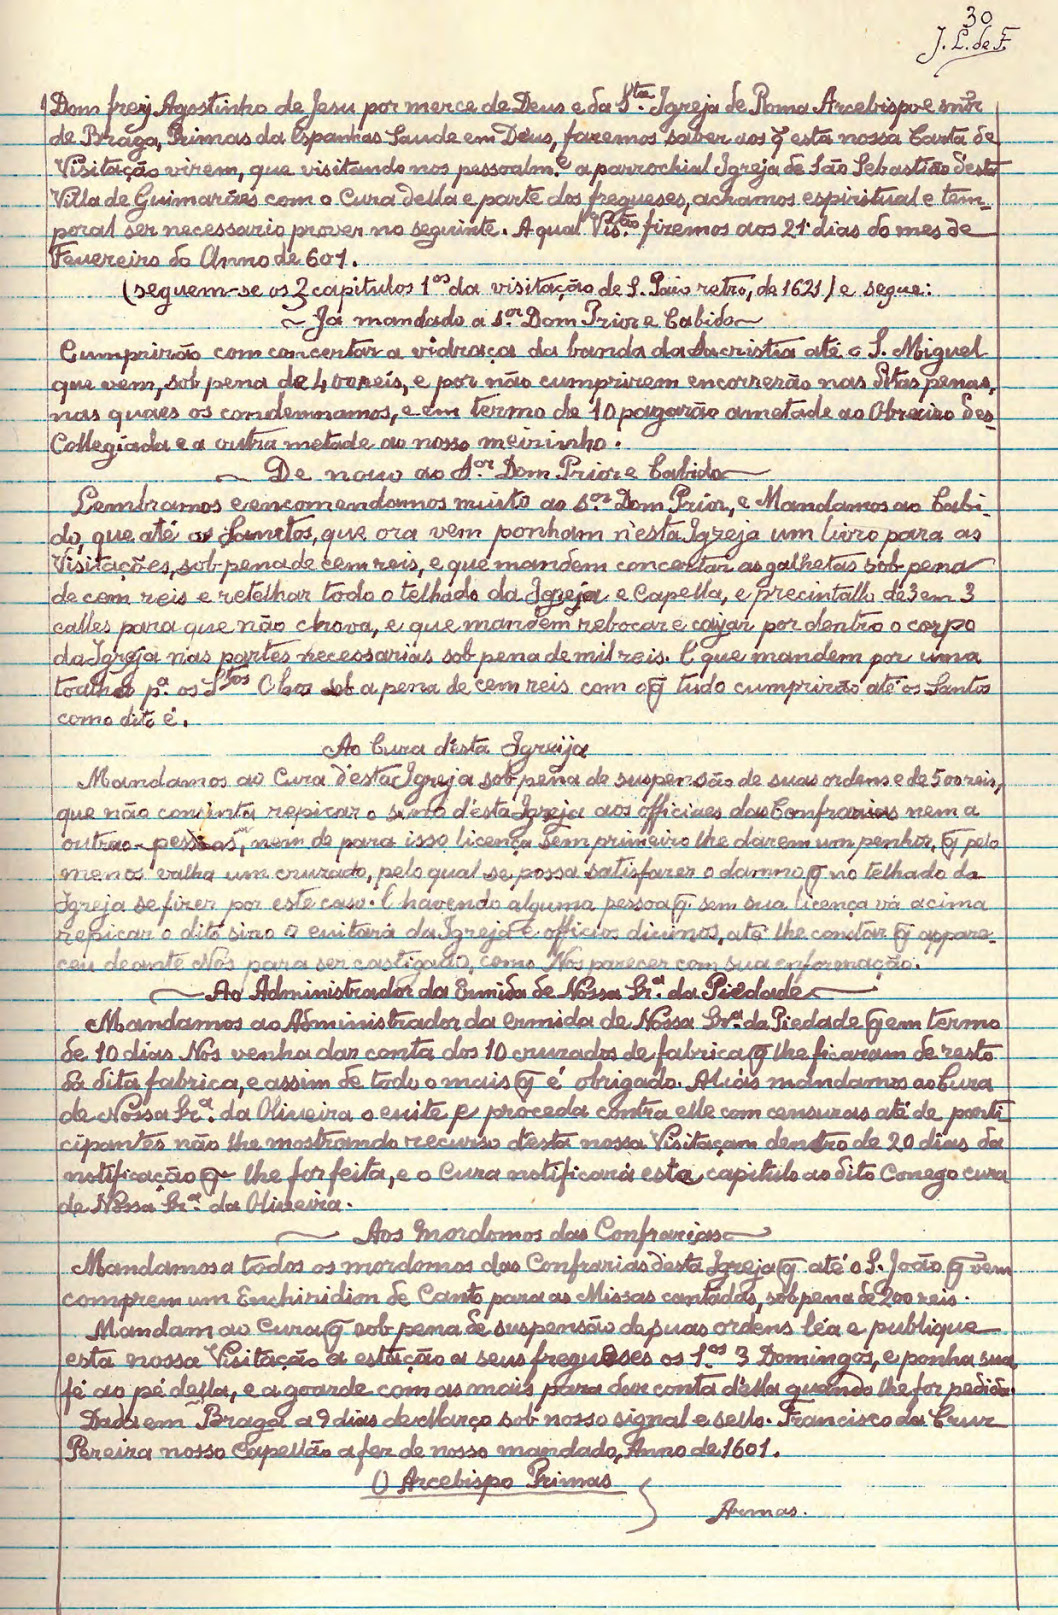 30
J. L. de F.
Dom frey Agostinho de Jesu por merce de Deus e da Sta. Igreja de Roma Arcebispo e snõr
de Braga, Primas das Espanhas Saude em Deus, fazemos saber aos q̃ esta nossa Carta de
Visitação virem, que visitando nos pessoalm.e a parrochial Igreja de São Sebastião desta
Villa de Guimarães com o Cura della e parte dos fregueses, achamos espiritual e tem-
poral ser necessario prover no seguinte. A qual Vis.tão fizemos aos 21 dias do mes de
Feuereiro do Anno de 601.
(seguem-se os 3 capitulos 1os da visitação de S. Paio retro, de 1621) e segue:
~ Já mandado a s.or Dom Prior e Cabido ~
Cumprirão com concertar a vidraça da banda da Sacristia até o S. Miguel
que vem, sob pena de 400 reis, e por não cumprirem encorrerão nas ditas penas,
nas quaes os condemnamos, e em termo de 10 pagarão ametade ao Obreiro des-
Collegiada e a outra metade ao nosso meirinho.
~ De nouo ao S.or Dom Prior e Cabido ~
Lembramos e encomendamos muito ao s.or Dom Prior, e Mandamos ao Cabi-
do, que até os Sanctos, que ora vem ponham n'esta Igreja um livro para as
Visitações, sob pena de cem reis, e que mandem concertar as galhetas sob pena
de cem reis e retelhar todo o telhado da Igreja e Capella, e precintallo de 3 em 3
calles para que não chova, e que mandem rebocar e cayar por dentro o corpo
da Igreja nas partes necessarias sob pena de mil reis. E que mandem por uma
toalha p.a os Stos Olios sob a pena de cem reis com o q̃ tudo cumprirão até os Santos
como dito é.
Ao Cura d'esta Igreija
Mandamos ao Cura d'esta Igreja sob pena de suspensão de suas ordens e de 500 reis,
que não consinta repicar o sino d'esta Igreja aos officiaes das Confrarias nem a
outras pessoas, nem de para isso licença sem primeiro lhe darem um penhor, q̃ pelo
menos valha um cruzado, pelo qual se possa satisfazer o damno q̃ no telhado da
Igreja se fizer por este caso. E havendo alguma pessoa q̃ sem sua licença vá acima
repicar o dito sino o euitará da Igreja e officios diuinos, até lhe constar q̃ appare-
ceu deante Nós para ser castigado, como Nos parecer com sua enformação.
~ Ao Administrador da Ermida de Nossa Sr.a da Piedade ~
Mandamos ao Administrador da ermida de Nossa Sr.a da Piedade q̃ em termo
de 10 dias Nos venha dar conta dos 10 cruzados de fabrica q̃ lhe ficaram de resto
da dita fabrica, e assim de todo o mais q̃ é obrigado. Aliás mandamos ao Cura
de Nossa Sr.a da Oliueira o euite e proceda contra elle com censuras até de parti-
cipantes não lhe mostrando recurso d'esta nossa Visitaçam dentro de 20 dias da
notificação q̃ lhe for feita, e o Cura notificará este capitulo ao dito Conego cura
de Nossa Sr.a da Oliueira.
~ Aos Mordomos das Confrarias ~
Mandamos a todos os mordomos das Confrarias desta Igreja q̃ até o S. João q̃ vem
comprem um Enchiridion de Canto para as Missas cantadas, sob pena de 200 reis.
Mandam ao Cura q̃ sob pena de suspensão de suas ordens léa e publique
esta nossa Visitação á estação a seus fregueses os 1.os 3 Domingos, e ponha sua
fé ao pé della, e a goarde com as mais para dar conta d'ella quando lhe for pedida.
Dada em Braga a 9 dias de Março sob nosso signal e sello. Francisco da Cruz
Pereira nosso Capellão a fez de nosso mandado, Anno de 1601.
O Arcebispo Primas
Armas.